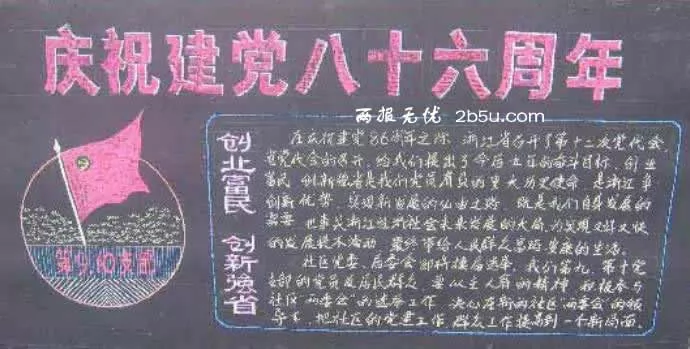 庆祝建党八十六周年
两报无优 2b5u.com
创业富民 创新强省
第9 10支部
在庆祝建党86周年之际 浙江省召开了第十二次党代会,
省党代会的召开, 给我们提出了今后五年的奋斗目标, 创业
富民 创新强省是我们党员肩负的重大历史使命 是浙江
创新优势, 实现新发展的必由之路, 既是我们自身发展的
需要 也事关浙江经济社会未来发展的大局, 为实现又好又快
的发展 最终带给人民群众 的生活,
社区党委、居委会即将换届选举, 我们第九、第十党
支部的党员及居民群众 要以主人翁的精神 积极参与
社区"两委会"的选举工作 决心在新的社区"两委会"的领
导下, 把社区的党建工作, 群众工作提高到一个新局面.